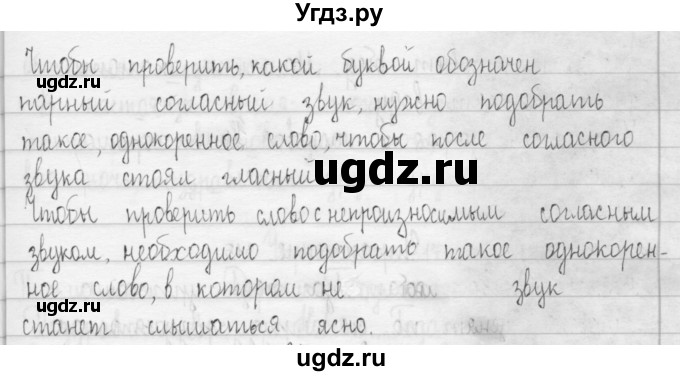 Угдз.ру
Чтобы проверить, какой буквой обозначен
парный согласный звук, нужно подобрать
такое, однокоренное слово, чтобы после согласного
звука стоял гласный
ugdz.ru
Чтобы проверить слово с непроизносимым согласным
звуком, необходимо подобрать такое однокорен-
ное слово, в котором звук
станет слышаться ясно.
ugdz.ru
ugdz.ru